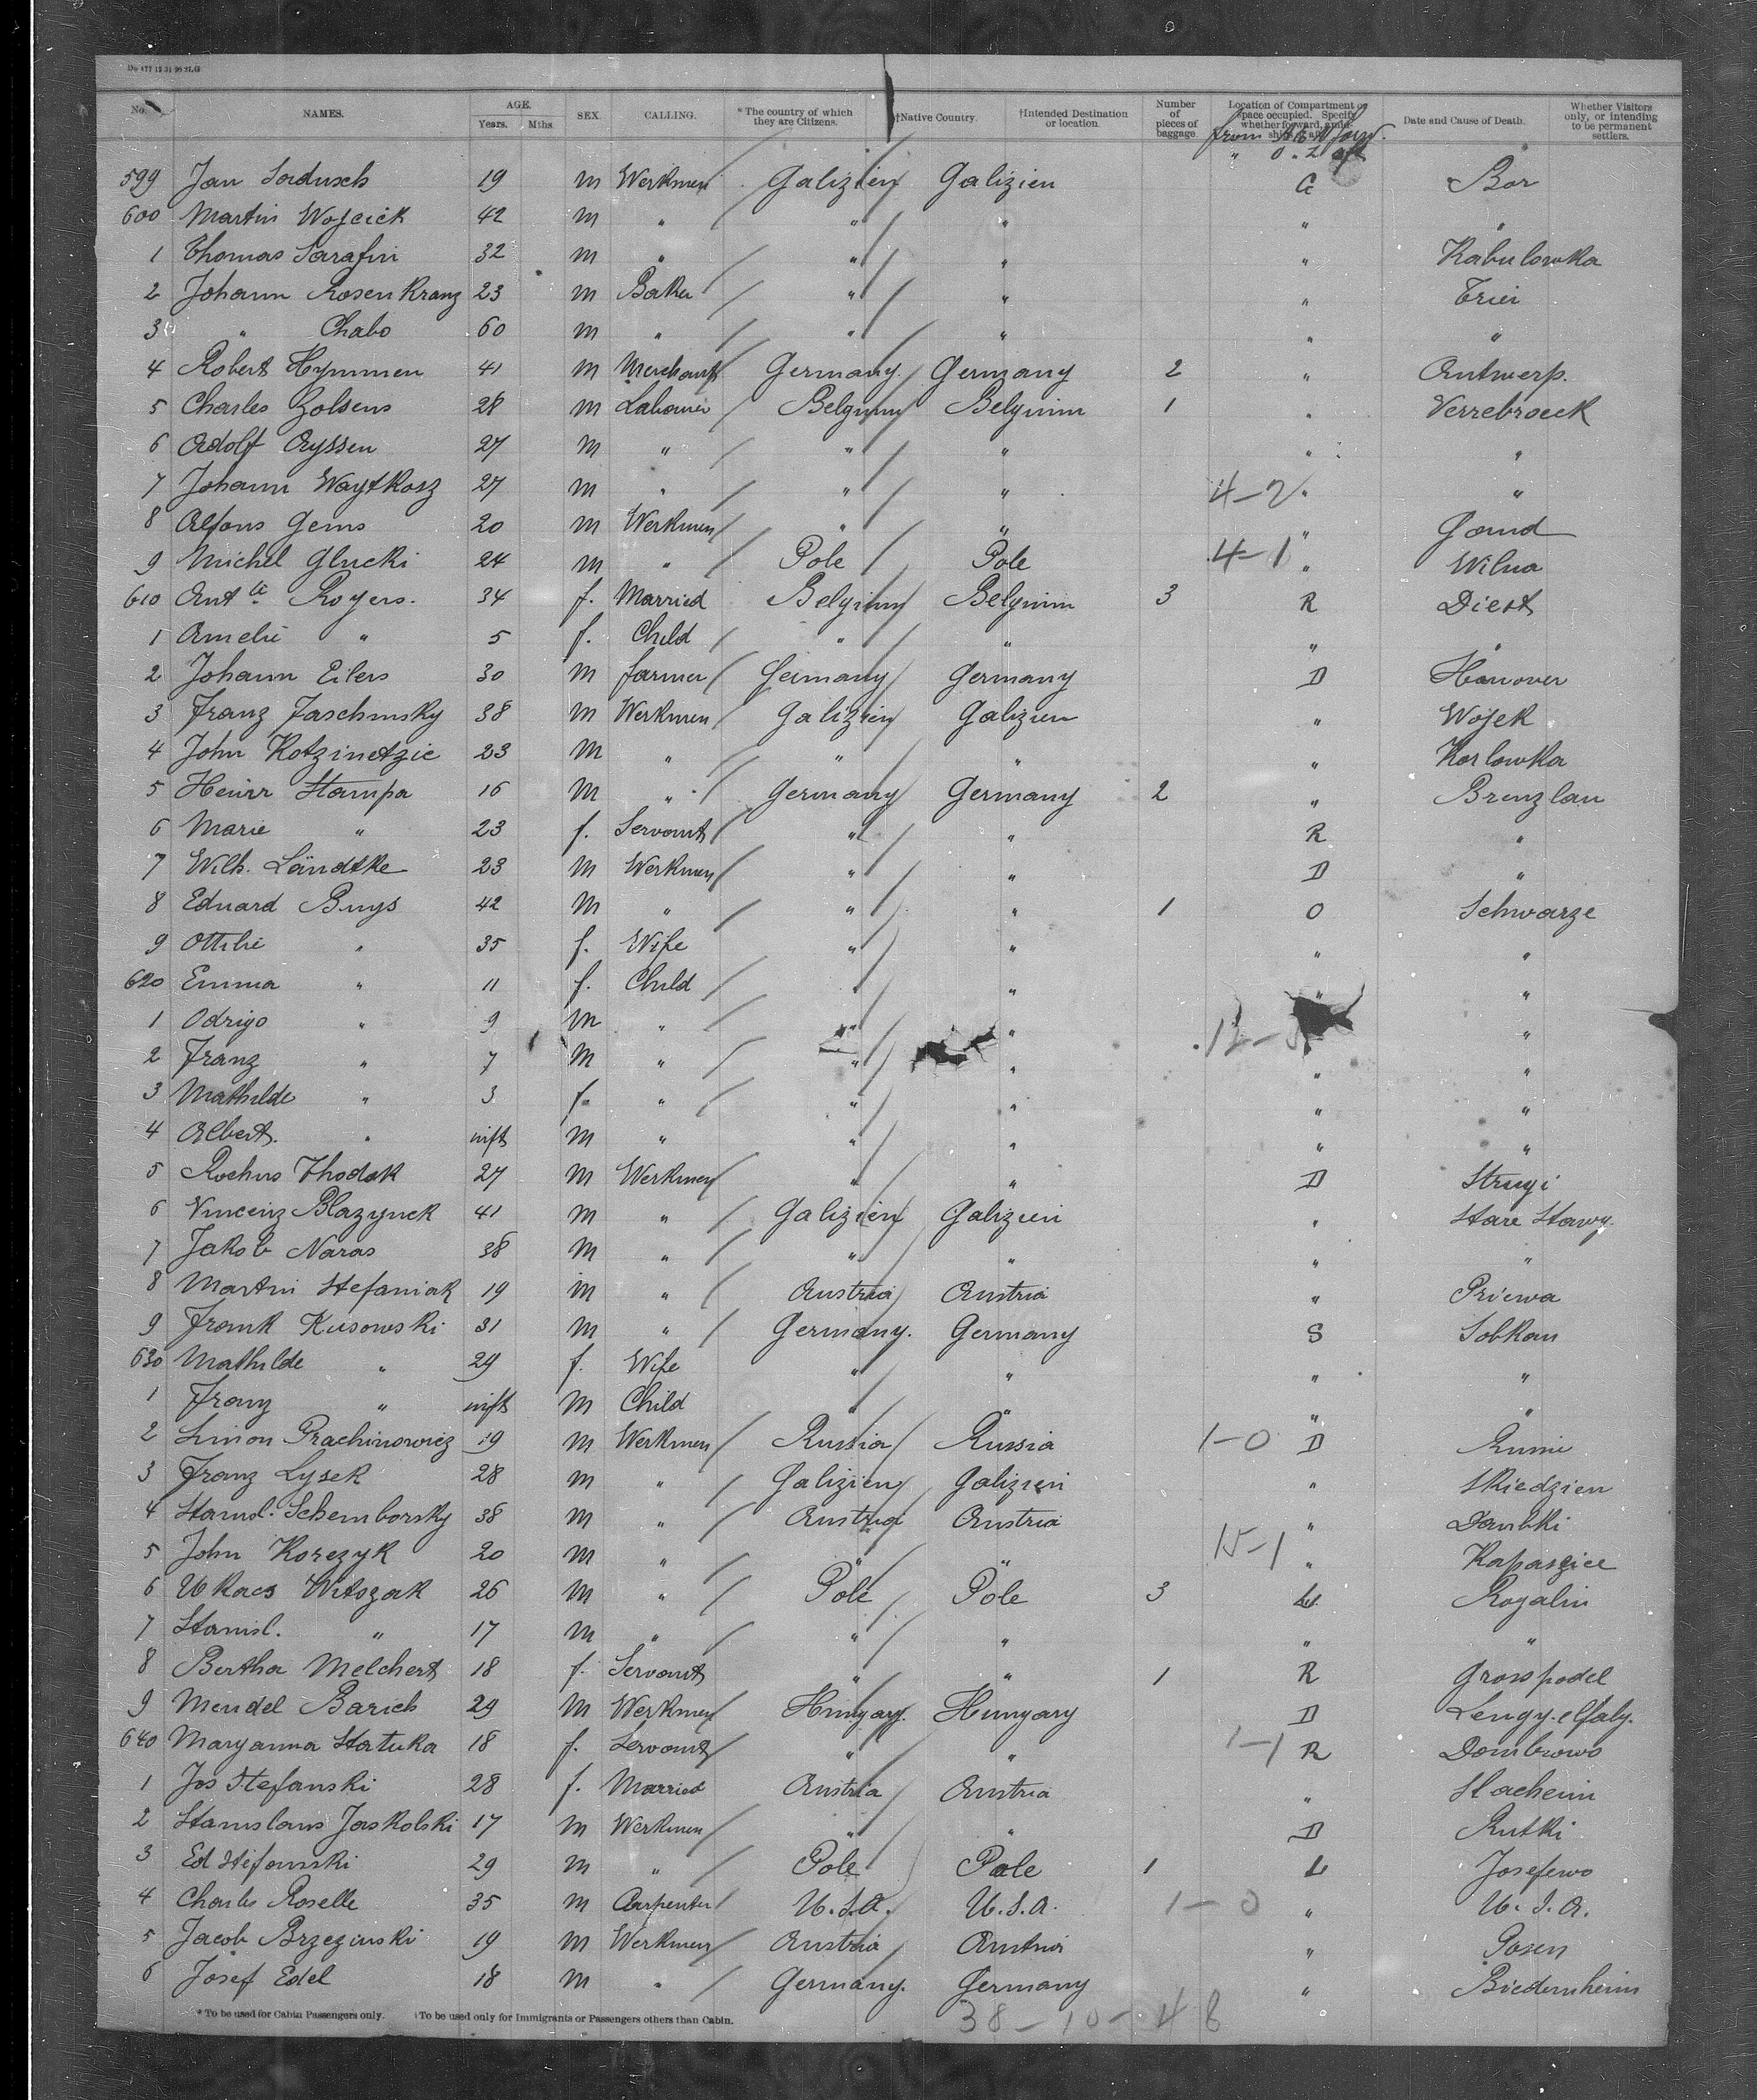 Do 477 12 31 90 2LG
No. NAMES. AGE. Years. Mths. SEX. CALLING. * The country of which they are Citizens. †Native Country. †Intended Destination or location. Number of pieces of baggage. Location of Compartment or space occupied. Specify whether forward, Date and Cause of Death. Whether Visitors only, or intending to be permanent settlers.
from
599 Jan 19 m Werkmen Galizien Galizien G Bor
600 Martin Wojcick 42 m " " " " "
1 Thomas Sarafin 32 m " " " " Kabulowka
2 Johann Rosenkranz 23 m Baker " " " Trier
3 " Chabo 60 m " " " " "
4 Robert Hymmen 41 m Merchant Germany Germany 2 " Antwerp.
5 Charles Zolsens 28 m Labourer Belgium Belgium 1 " Verrebroeck
6 Adolf Ryssen 27 m " " " " "
7 Johann Waytkosz 27 m " " " 4-2 " "
8 Alfons Gems 20 m Werkmen " " " Gand
9 Michel Glucki 24 m " Pole Pole 4-1 " Wilna
610 Antte Royers. 34 f. Married Belgium Belgium 3 R Diest
1 Amelie " 5 f. Child " " " "
2 Johann Eilers 30 m farmer Germany Germany D Hanover
3 Franz Jaschinsky 38 m Werkmen Galizien Galizien " Wojek
4 John Kotzinetzie 23 m " " " " Korlowka
5 Heinr Stampa 16 m " Germany Germany 2 " Brenzlau
6 Marie " 23 f. Servant " " R "
7 Wilh. Ländtke 23 m Werkmen " " D "
8 Eduard Buys 42 m " " " 1 O Schwarze
9 Ottilie " 35 f. Wife " " " "
620 Emma " 11 f. Child " " " "
1 Odrigo " 9 m " " " 12- "
2 Franz " 7 m " " " " "
3 Mathilde " 3 f. " " " " "
4 Albert. " inft m " " " " "
5 Rochus Thodak 27 m Werkmen " " D Struyi
6 Vincenz Blazynck 41 m " Galizien Galizien " Stare Stawy.
7 Jakob Naras 38 m " " " " "
8 Martin Stefaniak 19 m " Austria Austria " Priewa
9 Frank Kusowski 31 m " Germany. Germany S Sobkau
630 Mathilde " 29 f. Wife " " " "
1 Franz " inft m Child " " " "
2 Simon Prachinowicz 19 m Werkmen Russia Russia 1-0 D
3 Franz Lysek 28 m " Galizien Galizien " Skiedzien
4 Stanisl. Schemborsky 38 m " Austria Austria " Dambki
5 John Korczyk 20 m " " " 15-1 "
6 Witszak 26 m " Pole Pole 3 Rogalin
7 Stanisl. " 17 m " " " " "
8 Bertha Melchert 18 f. Servant " " 1 R Grosspodel
9 Mendel Barich 29 m Werkmen Hungary. Hungary D
640 Maryanna Statuka 18 f. Servant " " 1-1 R Dombrowo
1 Jos Stefanski 28 f. Married Austria Austria "
2 Stanislaus Jaskolski 17 m Werkmen " " D Rutki
3 Ed Stefanski 29 m " Pole Pole 1 L Josefewo
4 Charles Roselle 35 m Carpenter U.S.A. U.S.A. 1-0 " U.S.A.
5 Jacob Brzezinski 19 m Werkmen Austria Austria " Posen
6 Josef Edel 18 m " Germany. Germany " Biedernheim
* To be used for Cabin Passengers only. †To be used only for Immigrants or Passengers others than Cabin.
38-10-48